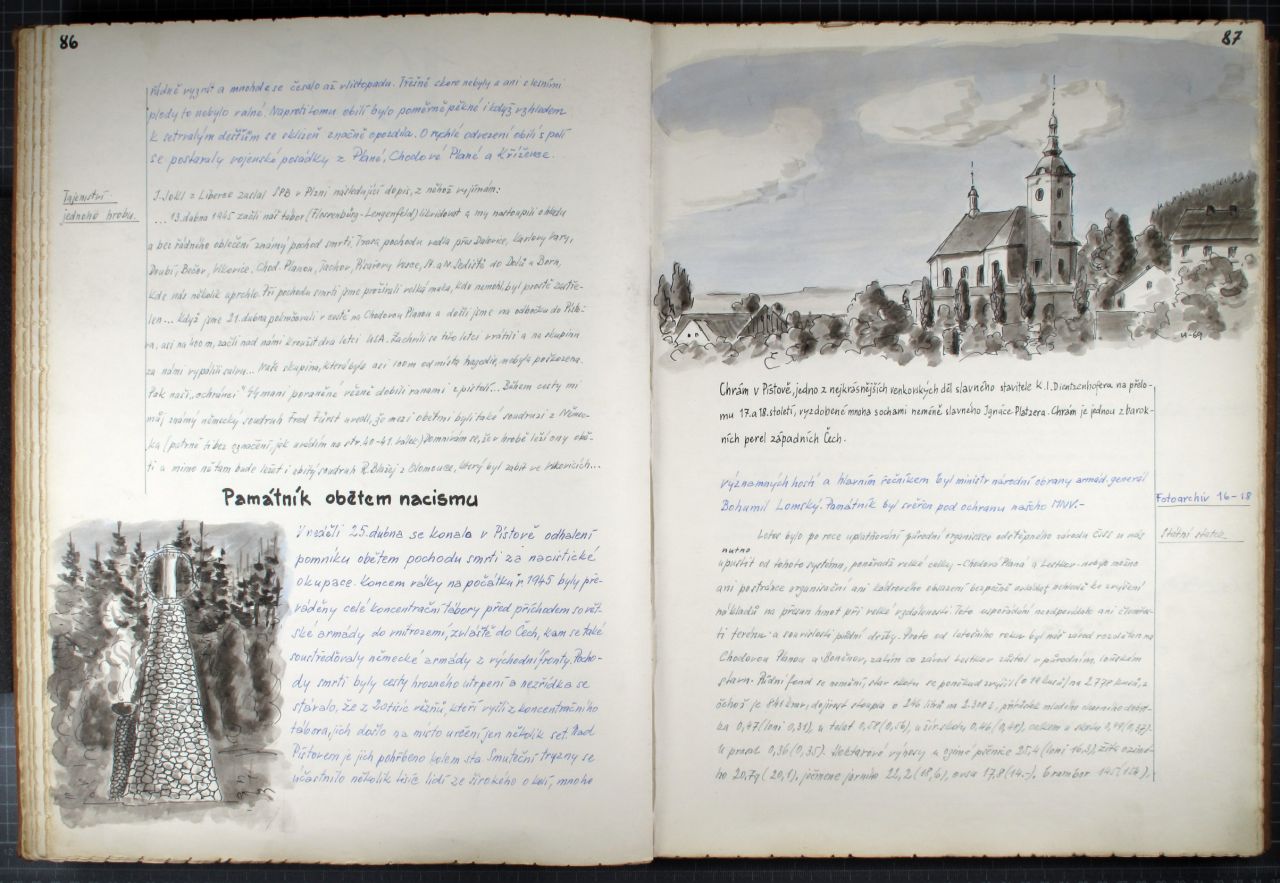 86
řádně vyzrát a mnohde se česalo až v listopadu. Třešně skoro nebyly a ani s lesními
plody to nebylo valné. Naproti tomu obilí bylo poměrně pěkné i když vzhledem
k setrvalým dešťům se sklizeň značně opozdila. O rychlé odvezení obilí s polí
se postaraly vojenské posádky z Plané, Chodové Plané a Křížence.
Tajemství
jednoho hrobu.
J. Sokl z Liberce zaslal SPB v Plzni následující dopis, z něhož vyjímám:
... 13. dubna 1945 začli náš tábor (Flossenbürg-Lengenfeld) likvidovat a my nastoupili o hladu
a bez řádného oblečení známý pochod smrti. Trasa pochodu vedla přes Dalovice, Karlovy Vary,
Doubí, Bečov, Vlkovice, Chod. Planou, Tachov, Písařovy Vesce, St. a N. Sedliště do Dolů u Boru,
kde nás několik uprchlo. Při pochodu smrti jsme prožívali velká muka, kdo nemohl, byl prostě zastře-
len... Když jsme 21. dubna pokračovali v cestě na Chodovou Planou a došli jsme na odbočku do Písto-
va, asi na 400 m, začli nad námi kroužit dva letci USA. Zachvíli se tito letci vrátili a na skupinu
za námi vypálili salvu... Naše skupina, která byla asi 100 m od místa
tak naši „ochránci“ týmani poraněné věčně dobili ranami z pistolí... Během cesty mi
můj známý německý soudruh Fred Fürst uvedl, že mezi obětmi byli také soudruzi z Němec-
ka (patrně ti bez označení, jak uvádím na str. 40-41. válek) Domnívám se, že v hrobě leží ony obě-
ti a mimo ně tam bude ležet i zbitý soudruh R. Blažej z Olomouce, který byl zabit ve Vlkovicích...
Památník obětem nacismu
V neděli 25. dubna se konalo v Pístově odhalení
pomníku obětem pochodu smrti za nacistické
okupace. Koncem války na počátku r. 1945 byly pře-
váděny celé koncentrační tábory před příchodem sovět-
ské armády do vnitrozemí, zvláště do Čech, kam se také
soustřeďovaly německé armády z východní fronty. Pocho-
dy smrti byly cesty hrozného utrpení a nezřídka se
stávalo, že z 20 tisíc vězňů, kteří vyšli z koncentračního
tábora, jich došlo na místo určení jen několik set. Nad
Pístovem je jich pohřbeno kolem sta. Smuteční tryzny se
účastnilo několik tisíc lidí ze širokého okolí, mnoho
87
U-69
Chrám v Pístově, jedno z nejkrásnějších venkovských děl slavného stavitele K. I. Dientzenhofera na přelo-
mu 17. a 18. století, vyzdobené mnoha sochami neméně slavného Ignáce Platzera. Chrám je jednou z barok-
ních perel západních Čech.
významných hostí a hlavním řečníkem byl ministr národní obrany armád. generál
Bohumil Lomský. Památník byl svěřen pod ochranu našeho MNV.-
Fotoarchív 16-18
Státní statek
Letos bylo po roce uplatňování původní organizace odštěpného závodu ČSSS u nás
nutno
upustit od tohoto systému, poněvadž velké celky - Chodová Planá a Lestkov - nebylo možno
ani po stránce organizační ani kádrového obsazení bezpečně ovládat ohledně ke zvýšení
nákladů na přesun hmot při velké vzdálenosti. Toto uspořádání neodpovídalo ani členitos-
ti terénu a souvislosti půdní držby. Proto od letošního roku byl náš závod rozdělen na
Chodovou Planou a Boněnov, zatím co závod Lestkov zůstal v původním, loňském
stavu. Půdní fond se nemění, stav skotu se poněkud zvýšil (o 18 kusů) na 2778 kusů, z
čehož je 841 krav, dojivost stoupla o 246 litrů na 2.301 l, přírůstek mladého chovného dobyt-
ka 0,47 (loni 0,31), u telat 0,58 (0,56), u žír. skotu 0,46 (0,40), celkem u skotu 0,49 (0,37).
U prasat 0,36 (0,35). Hektarové výnosy u ozimé pšenice 25,4 (loni 16,3) žita ozimé-
ho 20,7q (20,1), ječmene jarního 22,2 (18,6), ovsa 17,8 (14.-), brambor 145 (154),